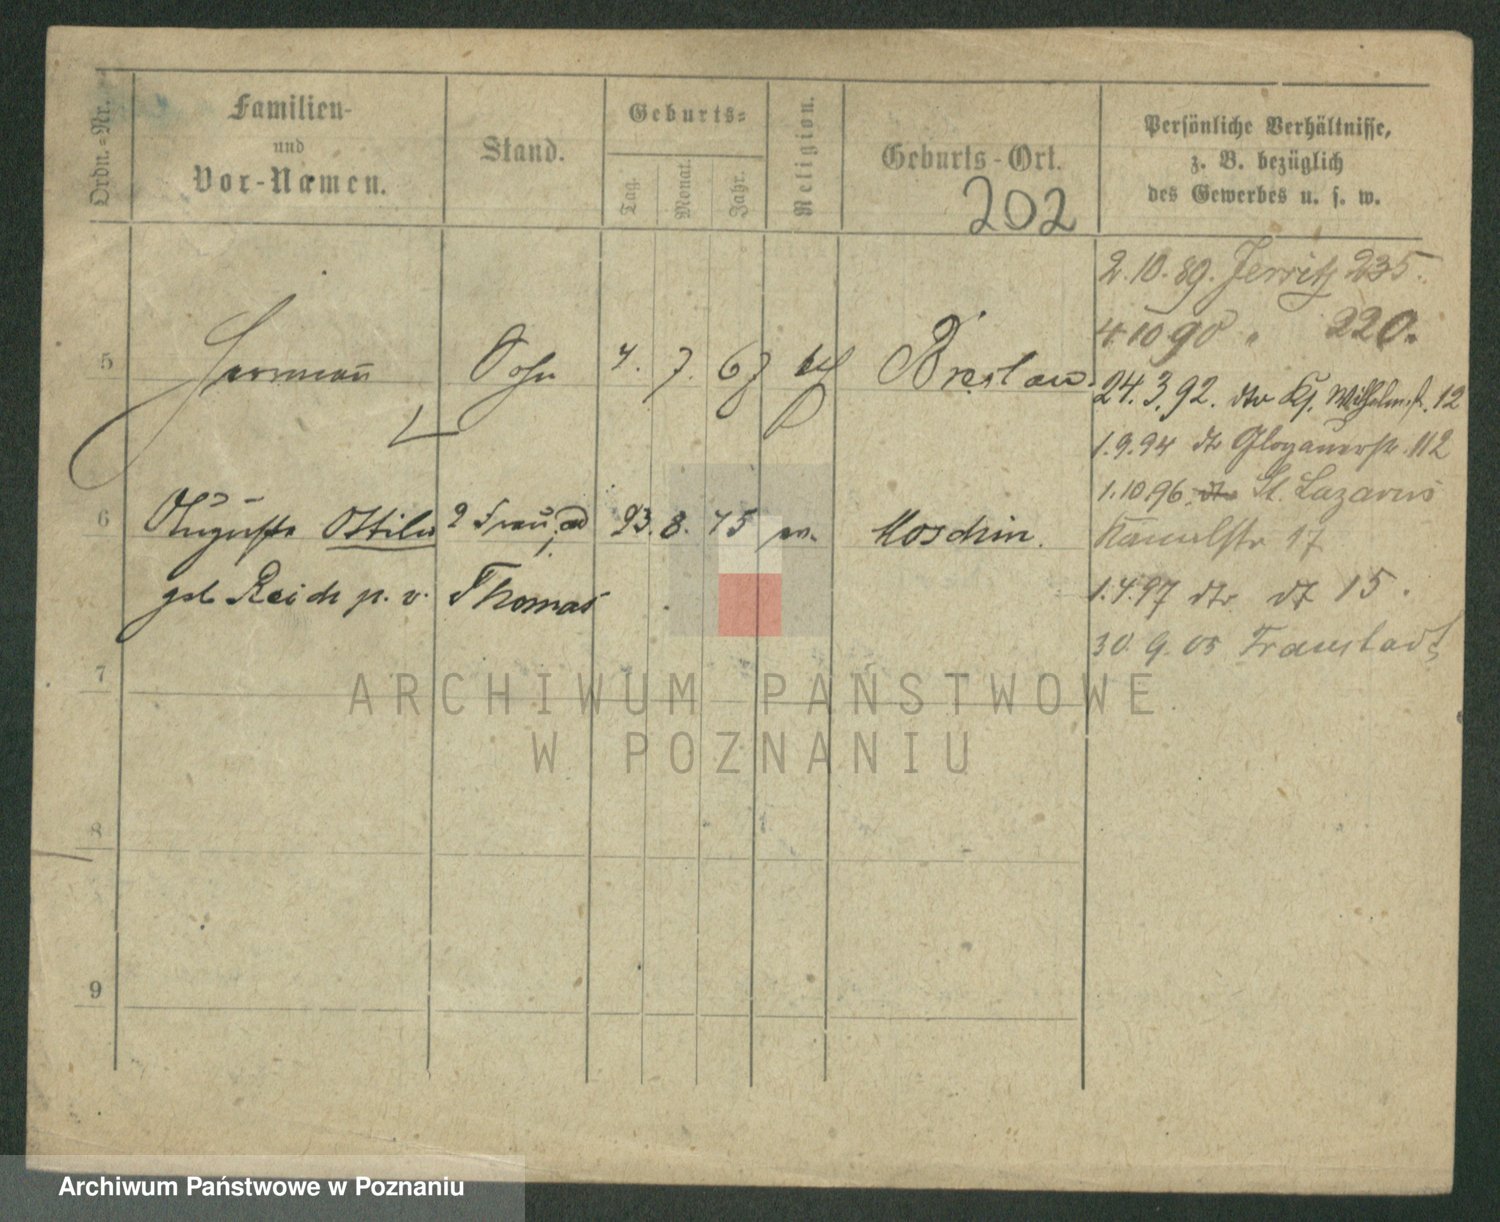 Ordn.-Nr.
Familien-
und
Vor-Namen.
Stand.
Geburts-
Tag.
Monat.
Jahr.
Religion.
Geburts-Ort.
202
Persönliche Verhältnisse,
z. B. bezüglich
des Gewerbes u. s. w.
2.10.89. Jerritz 235.
4 10 90 " 220.
5 Hermann Sohn 4. 7. 67 Breslau
24. 3. 92. dto Kg. Wilhelmst. 12
1.9.94 dto Glogauerstr. 112
1.10 96. dto St. Lazarus
6 Auguste Ottilie 2 Frau, ad 23. 8. 75 Moschin.
17
geb Reich p. v. Thomas
1.4.97 dto dt 15.
30. 9. 05 Fraustadt
7
ARCHIWUM PAŃSTWOWE
W POZNANIU
8
9
Archiwum Państwowe w Poznaniu